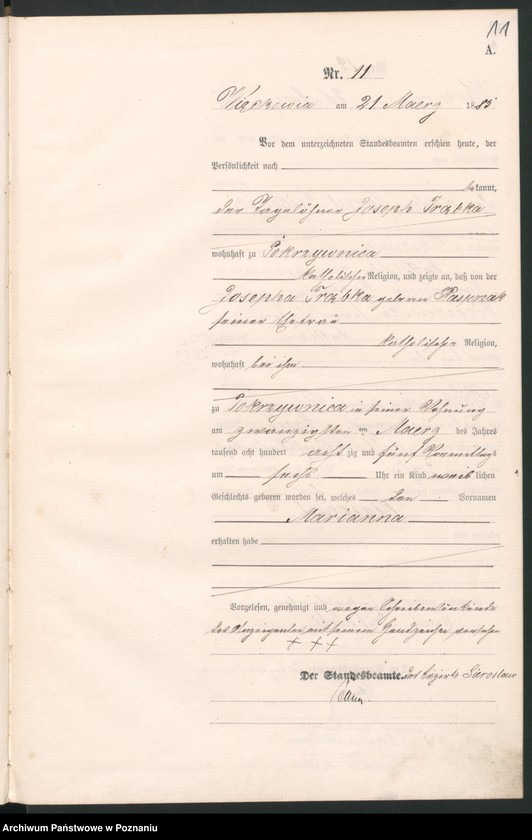 11
A.
Nr. 11
am 21 Maerz 1885
Vor dem unterzeichneten Standesbeamten erschien heute, der
Persönlichkeit nach
bekannt,
der Tagelöhner Joseph Trabka
wohnhaft zu Pokrzywnica
katholischer Religion, und zeigte an, daß von der
Josepha Trabka geborene
seiner Ehefrau
katholischer Religion,
wohnhaft bei ihm
zu Pokrzywnica in seiner Wohnung
am zwanzigsten ten Maerz des Jahres
tausend acht hundert achtzig und fünf Vormittags
um sechs Uhr ein Kind weiblichen
Geschlechts geboren worden sei, welches den Vornamen
Marianna
erhalten habe
Vorgelesen, genehmigt und wegen Schreibensunkunde
des Anzeigenden mit seinem Handzeichen versehen
+ + +
Der Standesbeamte. des Bezirks
Archiwum Państwowe w Poznaniu